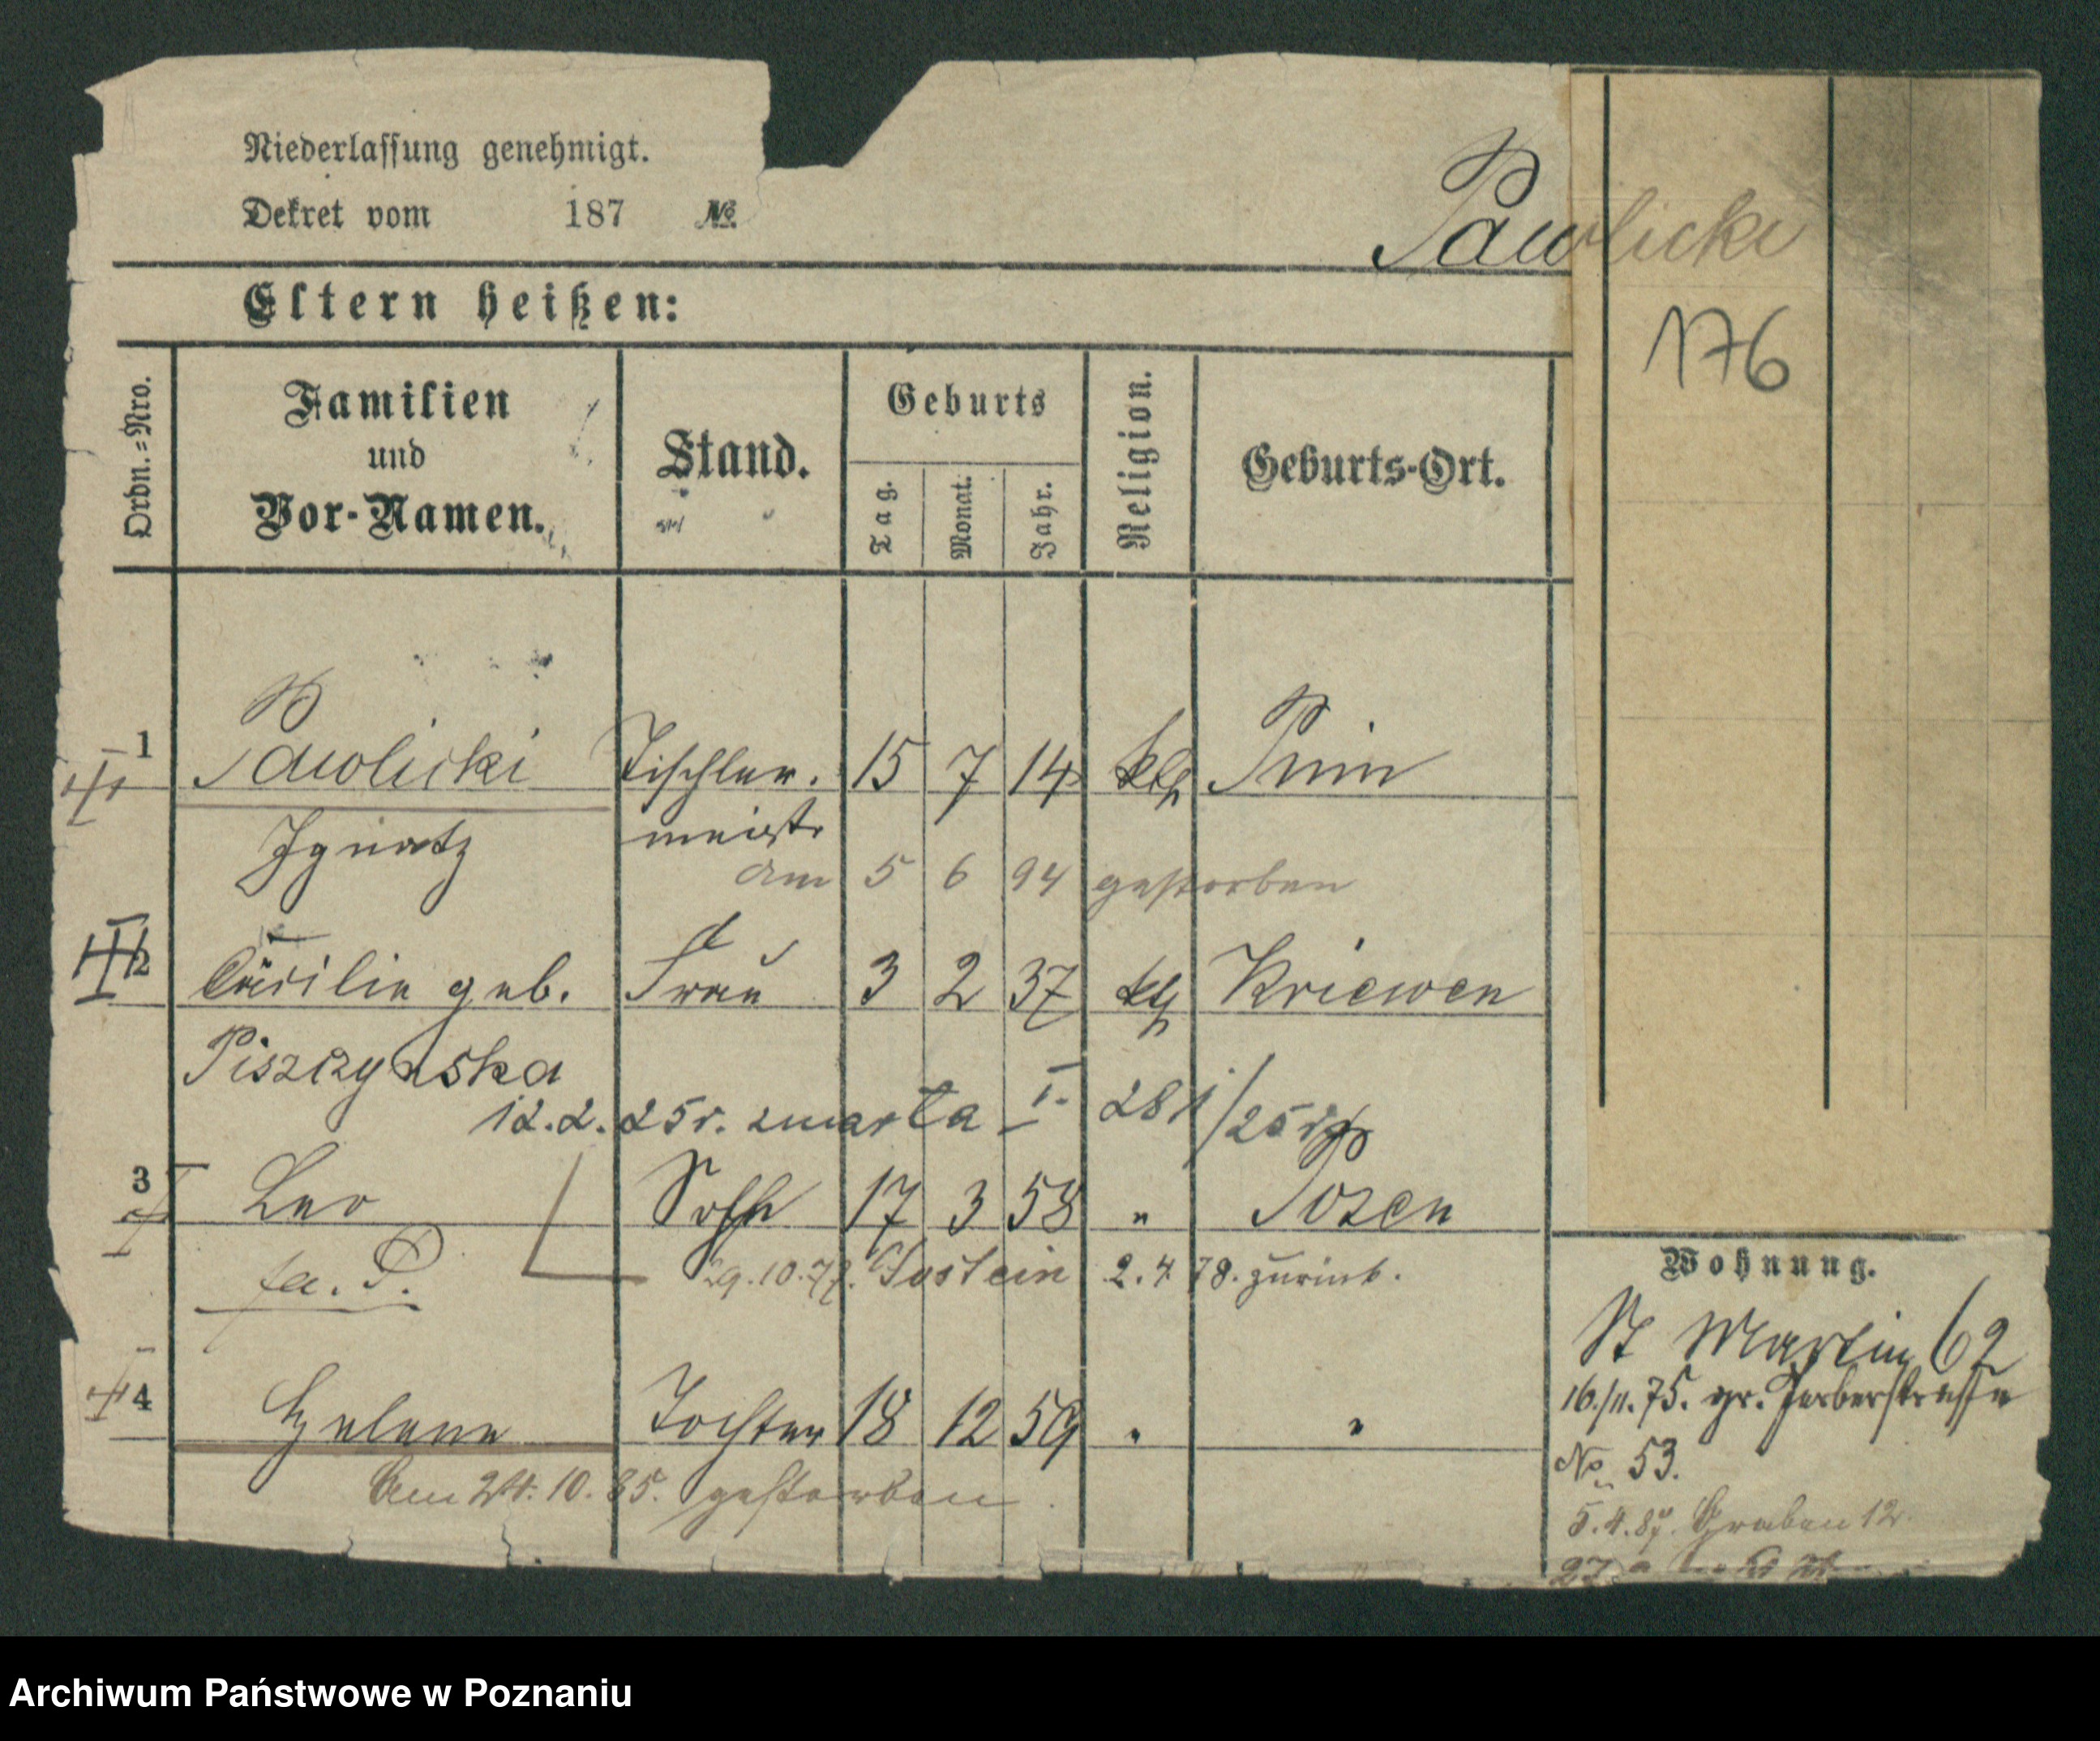 Niederlassung genehmigt.
Dekret vom 187 №
Pawlicki
176
Eltern heißen:
Ordn.=Nro. Familien und Vor-Namen. Stand. Geburts Tag. Monat. Jahr. Religion. Geburts-Ort.
1 Pawlicki Tischler. 15 7 14 kth Pnin
Ignatz meistr
am 5 6 94 gestorben
2 Cäcilie geb. Frau 3 2 37 kth Kriewen
Piszczynska
12.2.25r. zmarła I. 281/25
3 Leo Sohn 17 3 58 " Posen
fa. P. 29.10.77. 2.4.78. zurück.
4 Helene Tochter 18 12 59 " "
Am 24.10.85. gestorben
Wohnung.
St Martin 62
16/11.75. gr. Gerberstrasse
No 53.
5.4.87. Graben 12.
Archiwum Państwowe w Poznaniu